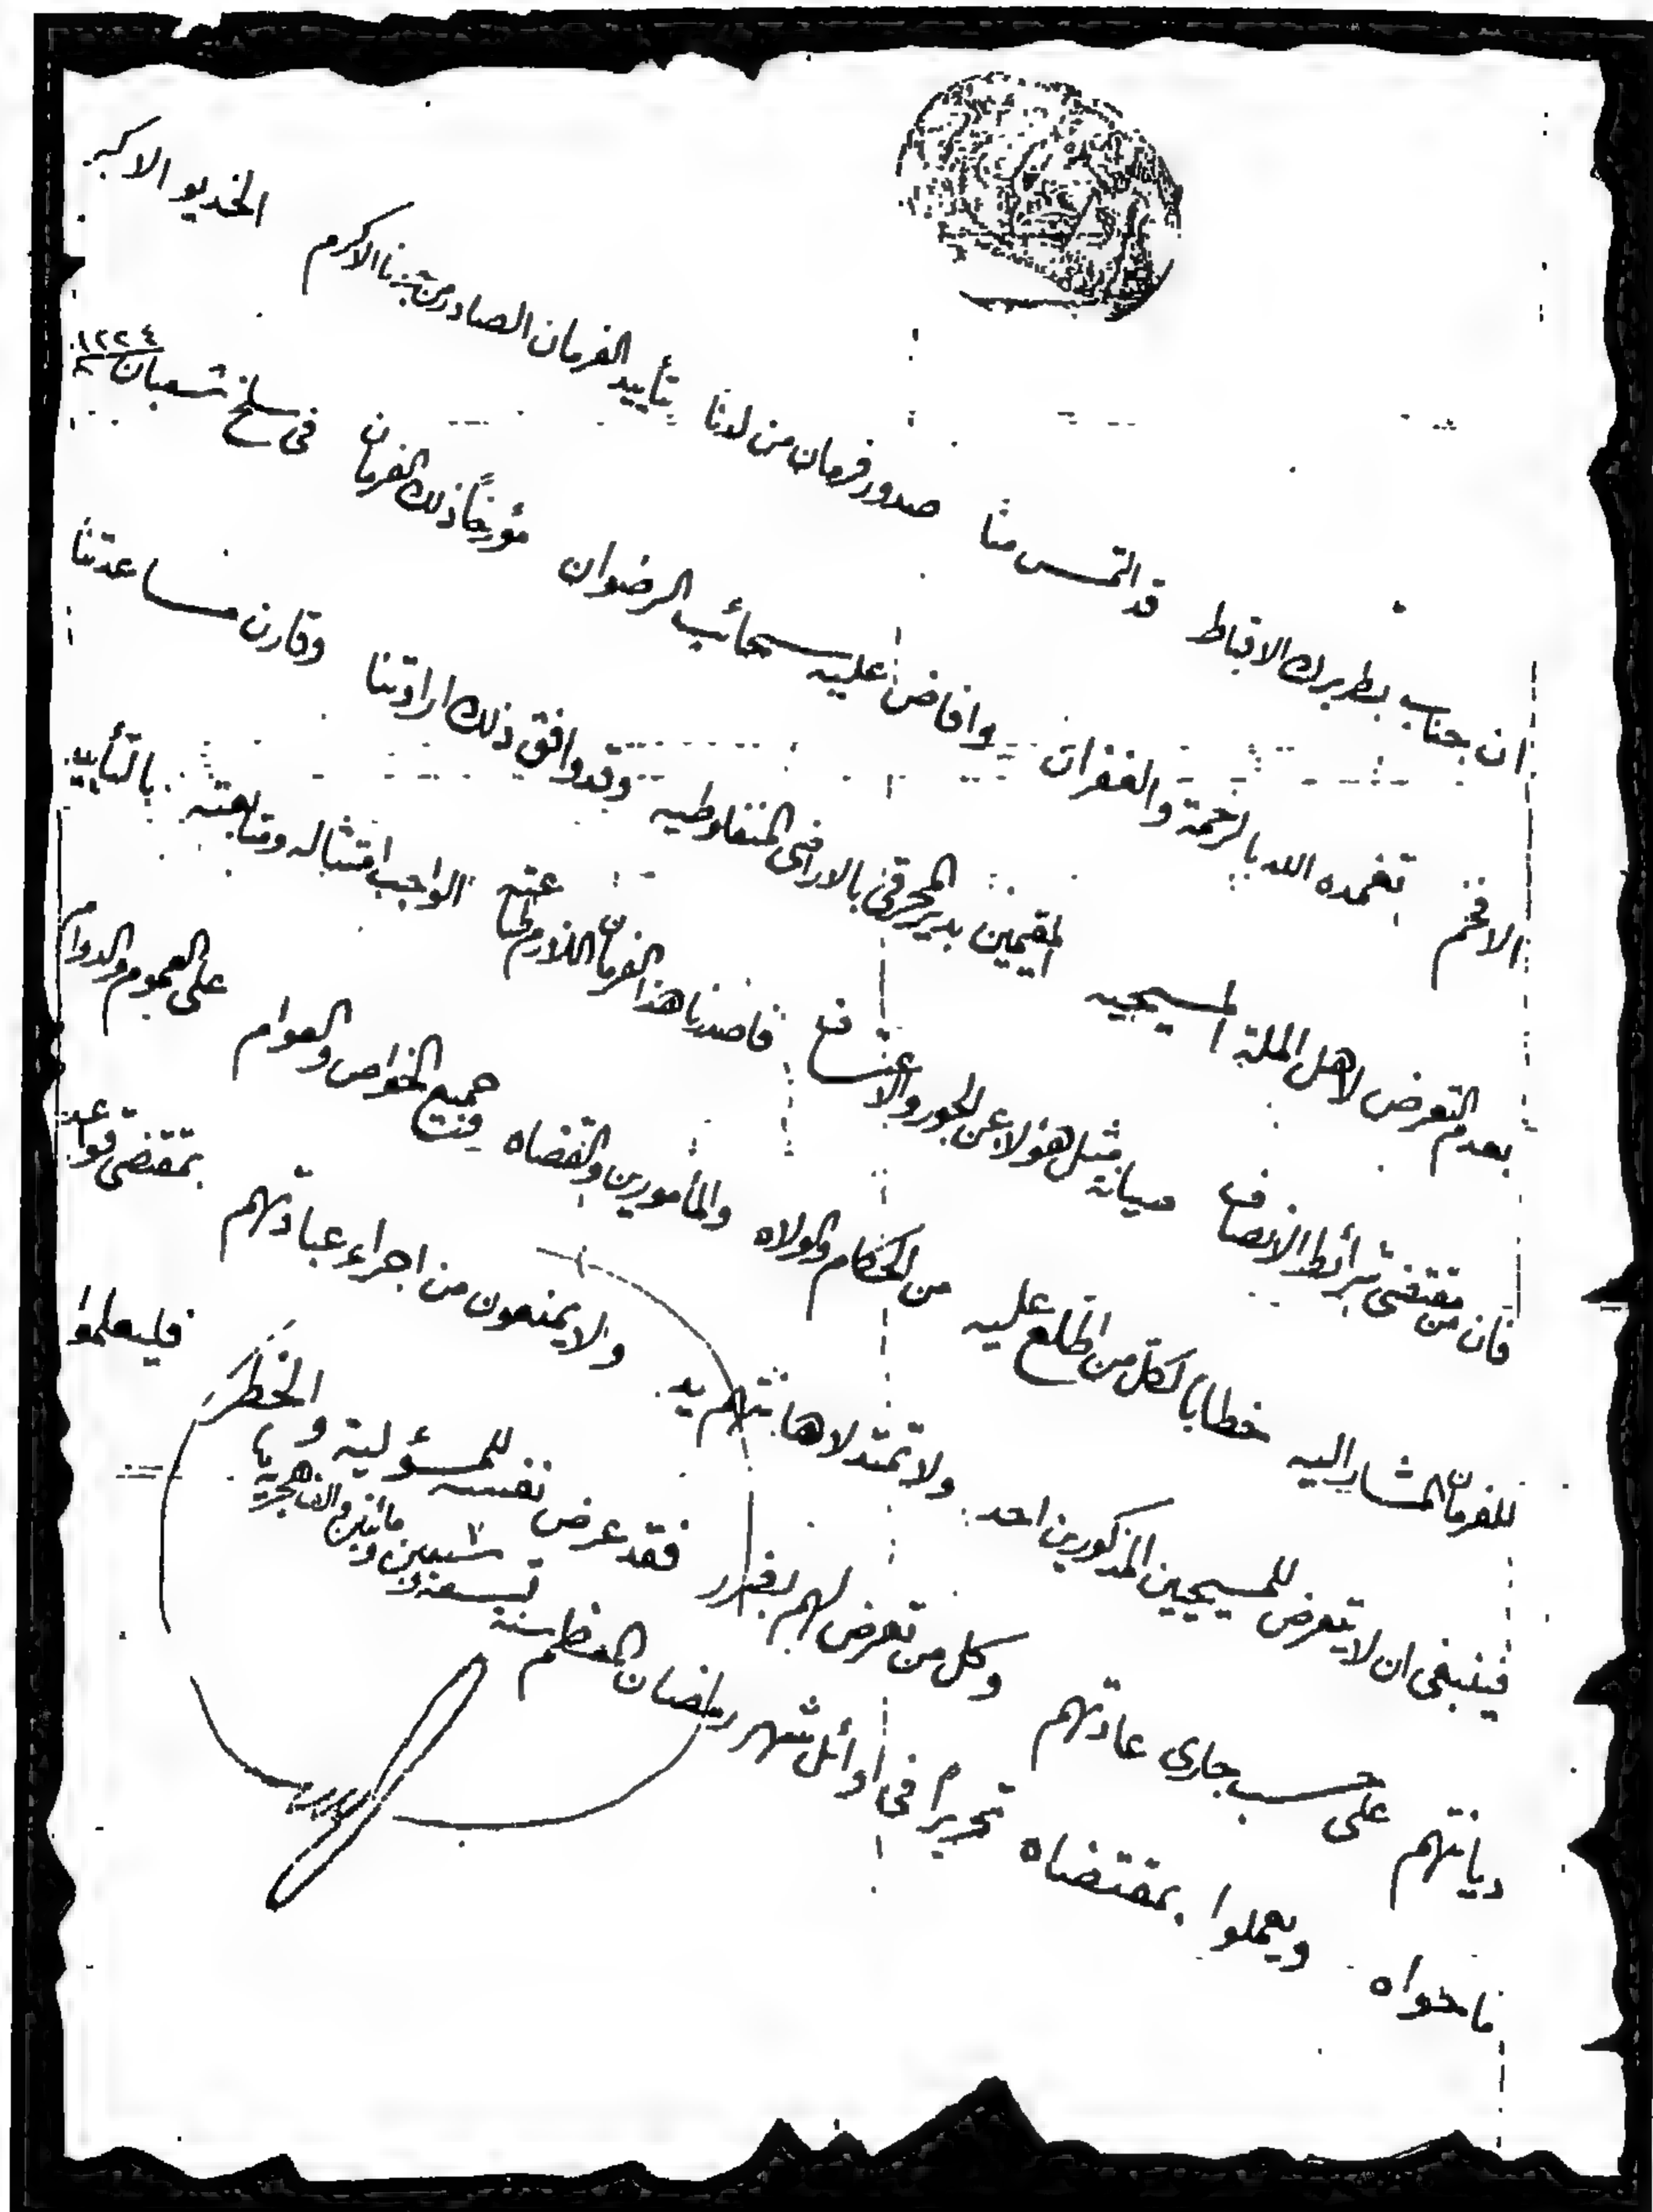 ان جناب بطريرك الاقباط قد التمس منا صدور فرمان من لدنا تأييد الفرمان الصادر من جدنا الاكرم الخديو الاكبر
الافخم تغمده الله بالرحمة والغفران وافاض عليه سحائب الرضوان مؤرخاً ذلك الفرمان فى سلخ شعبان ١٢٢٤
بعدم التعرض لاهل الملة المسيحيه المقيمين بدير المحرق بالاراضى المنفلوطيه وقد وافق ذلك ارادتنا وقارن مساعدتنا
فان من مقتضى شرائط الانصاف صيانة مثل هؤلاء عن الجور والاعتساف فاصدرنا هذا الفرمان اللازم الواجب امتثاله ومتابعته بالتأييد
للفرمان المشار اليه خطابا لكل من اطلع عليه من الحكام والولاه والمأمورين والقضاه جميع الخواص والعوام على العموم والدوام
فينبغى ان لا يتعرض للمسيحيين المذكورين احد ولا تمتد لاهانتهم يد ولا يمنعون من اجراء عباداتهم بمقتضى قواعد
ديانتهم على حسب جارى عادتهم وكل من تعرض لهم بضرر فقد عرض نفسه للمسؤلية والخطر فليعلموا
ما حواه ويعملوا بمقتضاه تحريرا فى اوائل شهر رمضان المعظم سنة تسعة وستين ومائتين والف هجريه